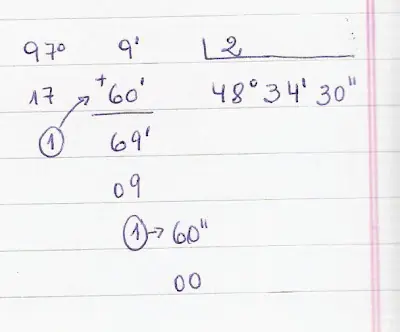 97° 9' 2
17 +60' 48° 34' 30"
1 69'
09
1 → 60"
00